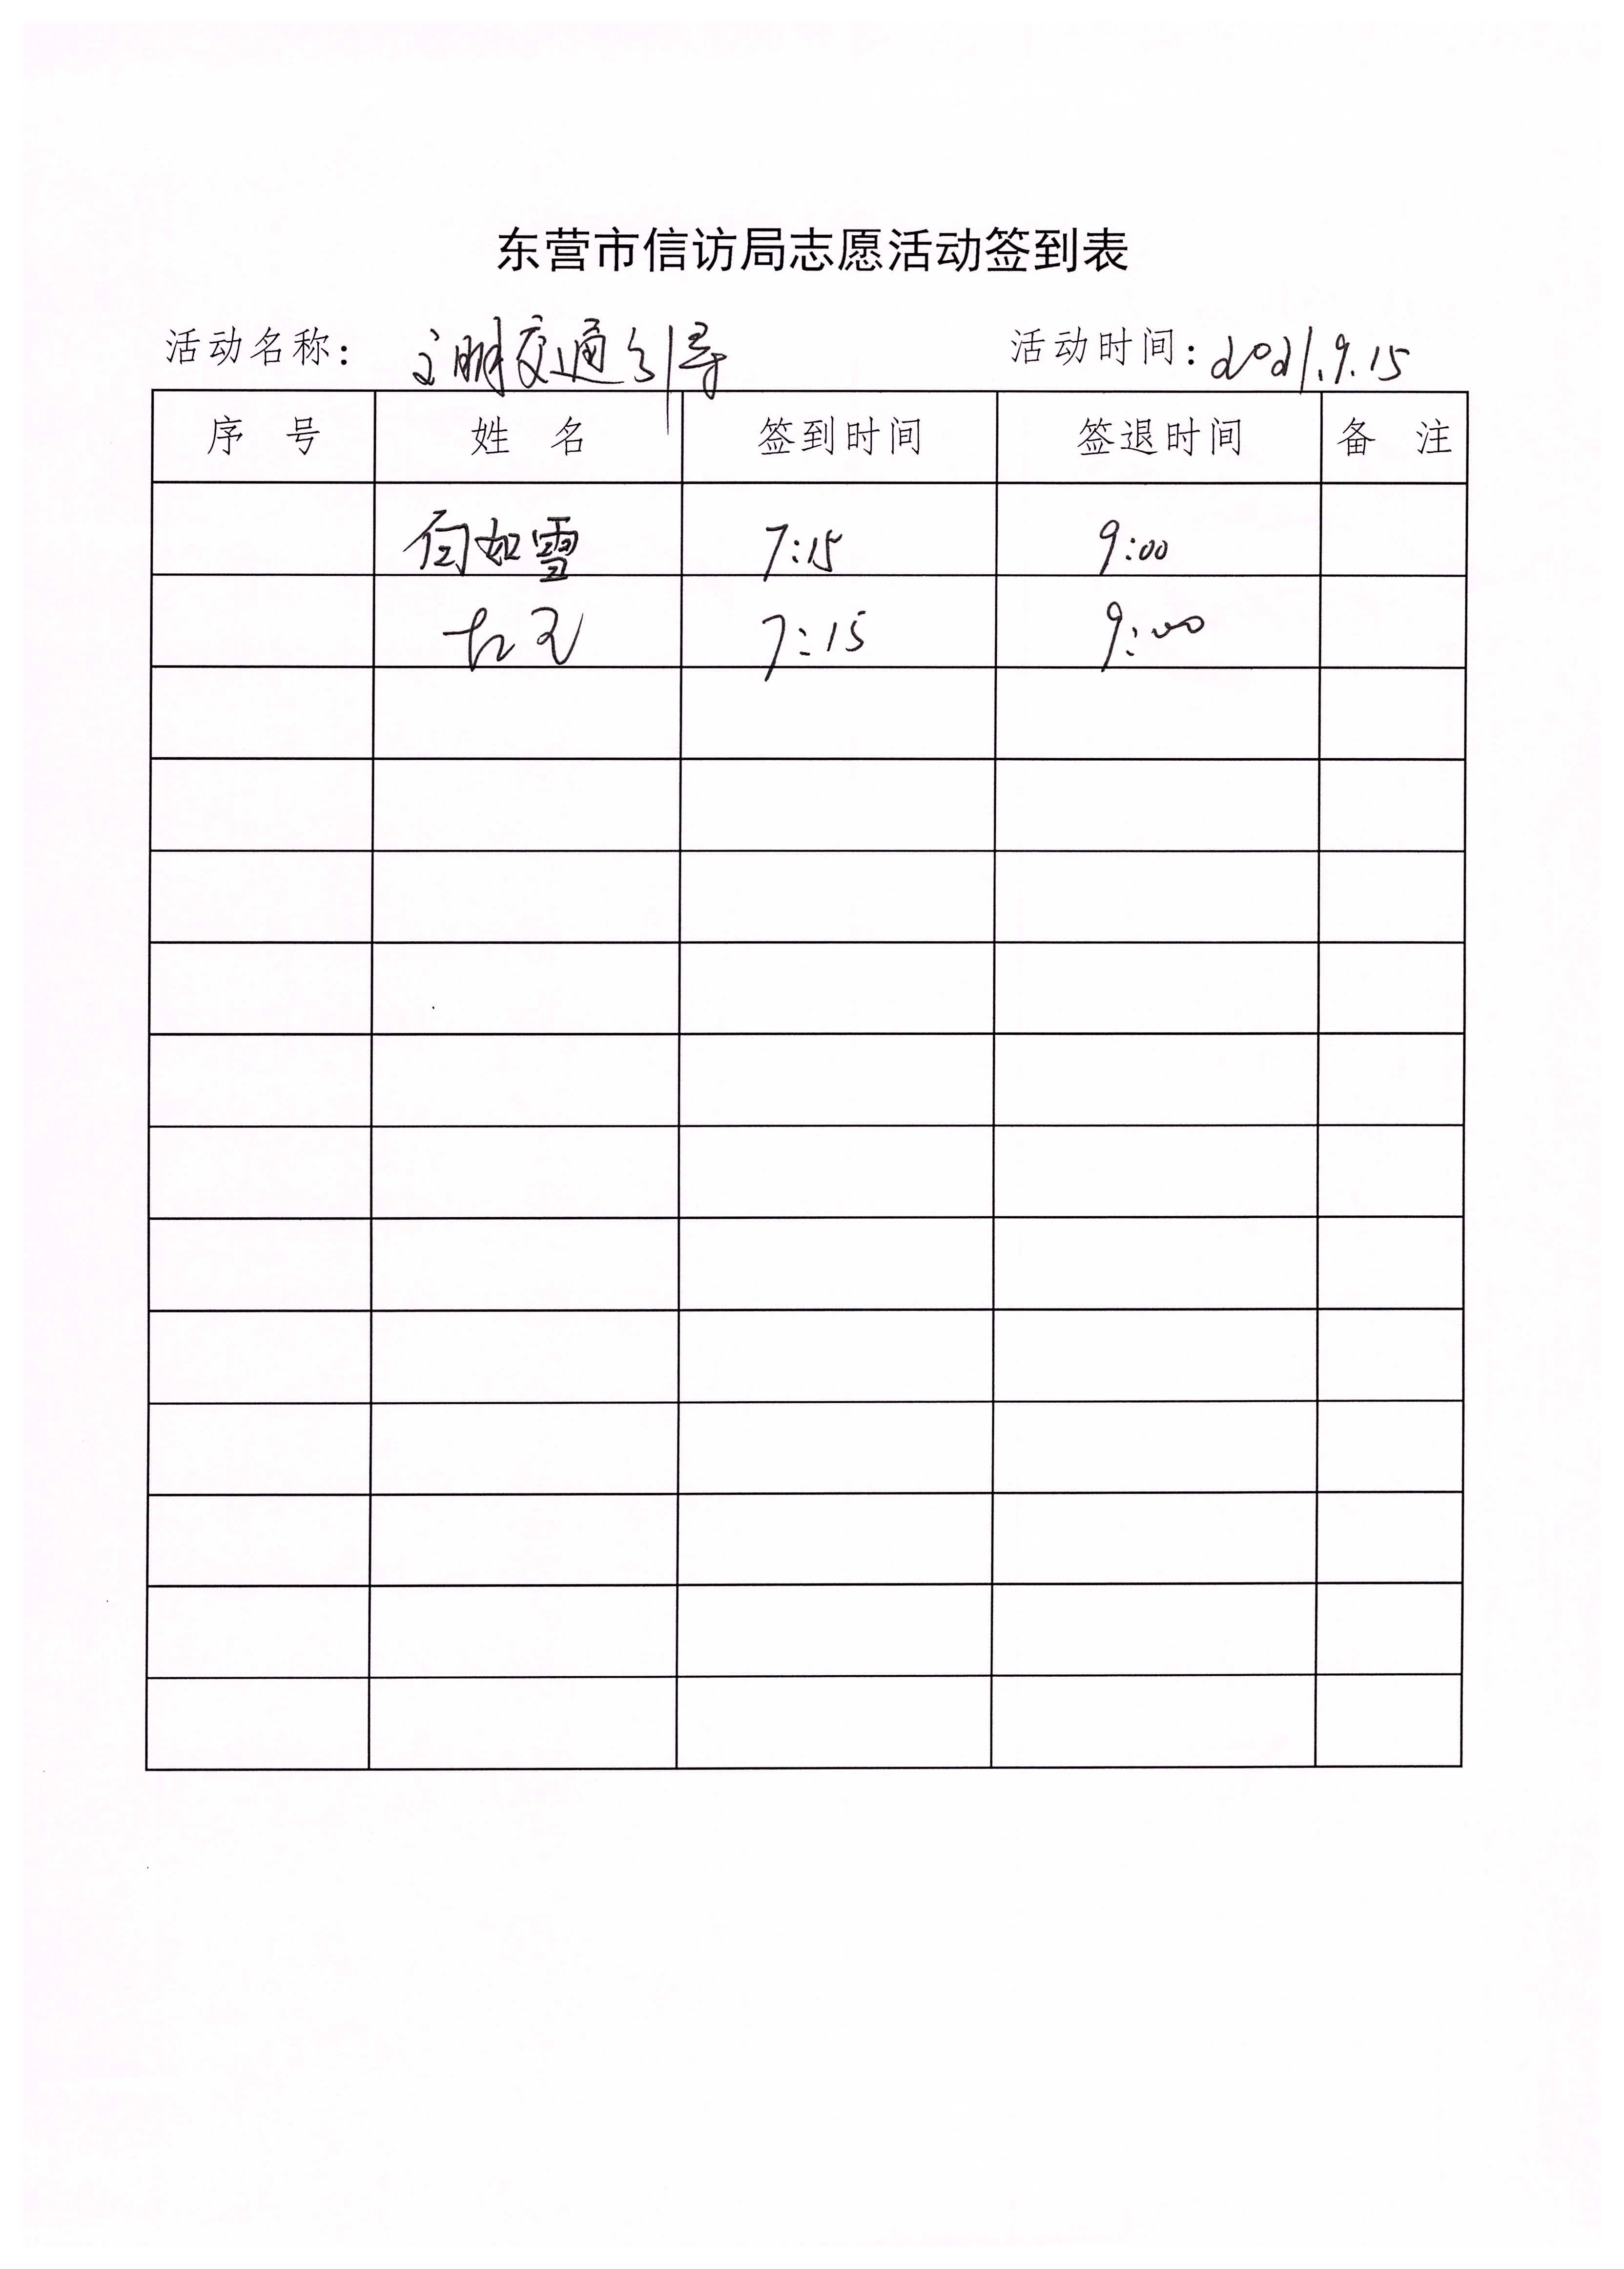 东营市信访局志愿活动签到表
活动名称：文明交通引导 活动时间：2021.9.15
序 号 姓 名 签到时间 签退时间 备 注
如雪 7:15 9:00
7:15 9:00